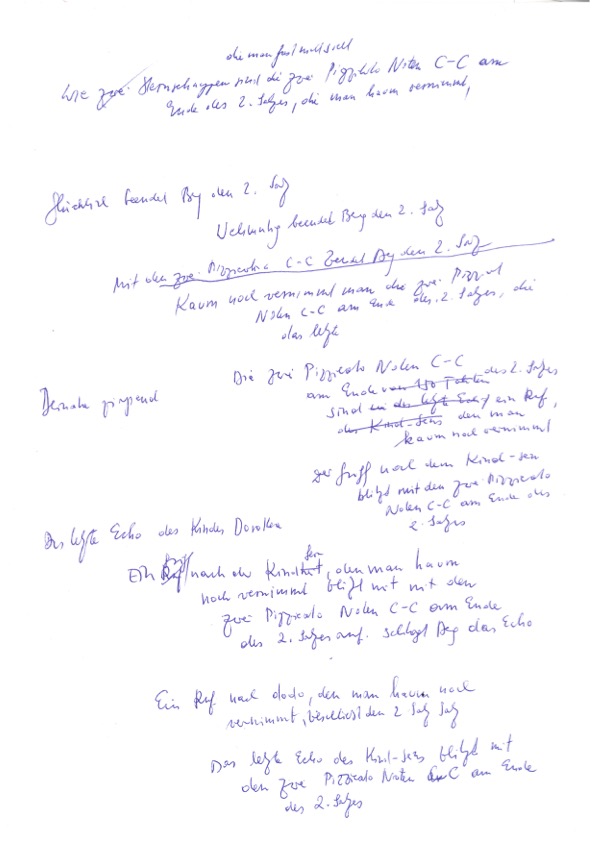 die man fast nicht sieht
Wie zwei Sternschnuppen sind die zwei Pizzicato Noten C-C am
Ende des 2. Satzes, die man kaum vernimmt,
Glücklich beendet Berg den 2. Satz
Wehmütig beendet Berg den 2. Satz
Mit den zwei Pizzicatos C-C Berg den 2. Satz
Kaum noch vernimmt man die zwei Pizzicat
Noten C-C am Ende des 2. Satzes, die
das letzte
Die zwei Pizzicato Noten C-C
am Ende von 180 Takten des 2. Satzes
sind ein das letzte Echo ein Ruf,
Beinahe
des Kind-Seins den man
kaum noch vernimmt
Der nach dem Kind-sein
blitzt mit den zwei Pizzicato
Noten C-C am Ende des
2. Satzes
Das letzte Echo des Kindes Dorothea
sein
Ein Ruf nach der Kind, den man kaum
noch vernimmt blitzt mit mit den
zwei Pizzicato Noten C-C am Ende
des 2. Satzes auf. schlägt Berg das Echo
Ein Ruf nach dodo, den man kaum noch
vernimmt, beschliest den 2 Satz Satz
Das letzte Echo des Kind-seins blitzt mit
den zwei Pizzicato Noten C-C am Ende
des 2. Satzes